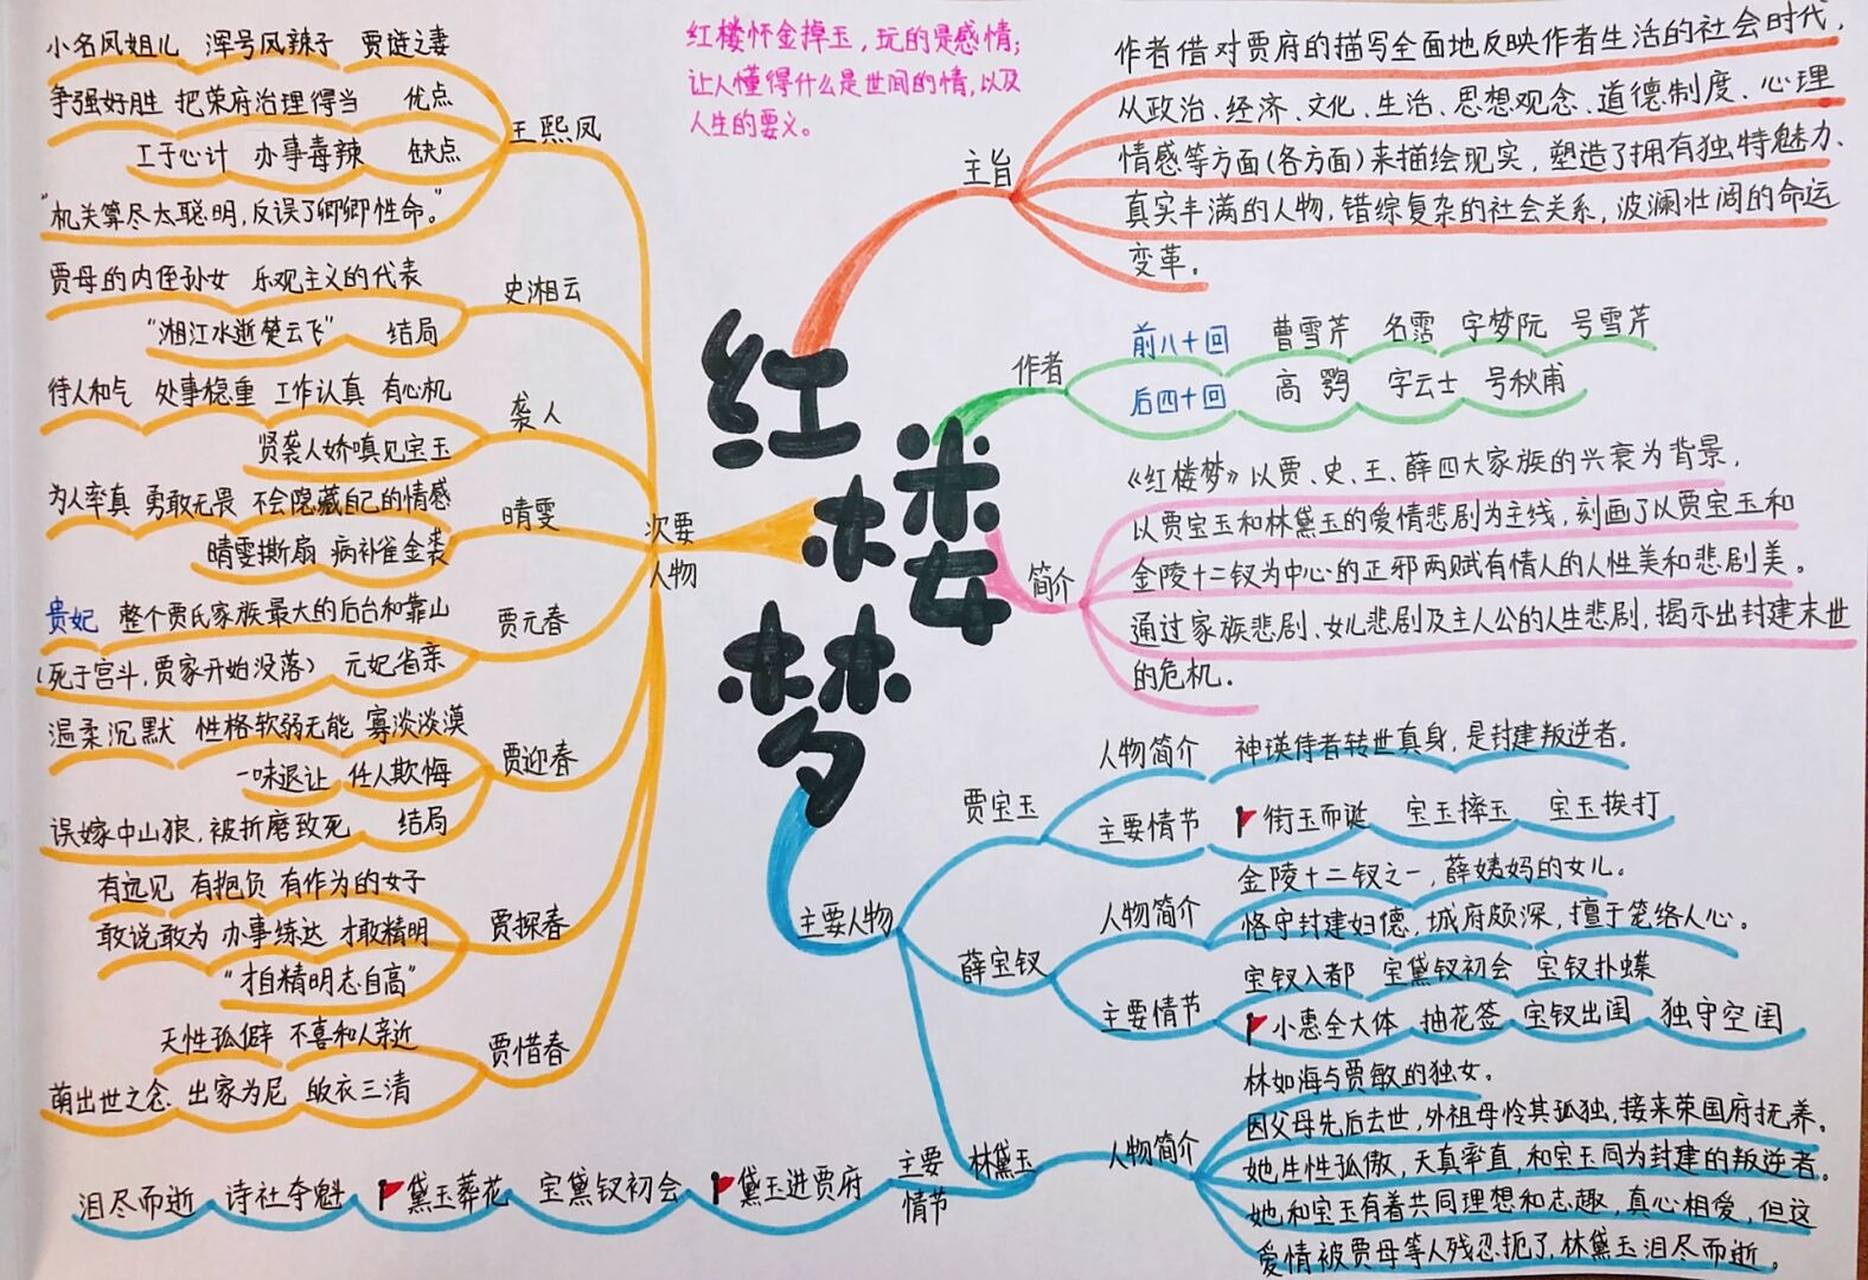 红楼梦
红楼怀金掉玉，玩的是感情；
让人懂得什么是世间的情，以及
人生的要义。
主旨
作者借对贾府的描写全面地反映作者生活的社会时代，
从政治、经济、文化、生活、思想观念、道德制度、心理
情感等方面（各方面）来描绘现实，塑造了拥有独特魅力、
真实丰满的人物，错综复杂的社会关系，波澜壮阔的命运
变革。
作者
前八十回 曹雪芹 名霑 字梦阮 号雪芹
后四十回 高鹗 字云士 号秋甫
简介
《红楼梦》以贾、史、王、薛四大家族的兴衰为背景，
以贾宝玉和林黛玉的爱情悲剧为主线，刻画了以贾宝玉和
金陵十二钗为中心的正邪两赋有情人的人性美和悲剧美。
通过家族悲剧、女儿悲剧及主人公的人生悲剧，揭示出封建末世
的危机。
主要人物
贾宝玉
人物简介 神瑛侍者转世真身，是封建叛逆者。
主要情节 衔玉而诞 宝玉摔玉 宝玉挨打
薛宝钗
人物简介
金陵十二钗之一，薛姨妈的女儿。
恪守封建妇德，城府颇深，擅于笼络人心。
主要情节
宝钗入都 宝黛钗初会 宝钗扑蝶
小惠全大体 抽花签 宝钗出闺 独守空闺
林黛玉
人物简介
林如海与贾敏的独女。
因父母先后去世，外祖母怜其孤独，接来荣国府抚养。
她生性孤傲，天真率直，和宝玉同为封建的叛逆者。
她和宝玉有着共同理想和志趣，真心相爱，但这
爱情被贾母等人残忍扼了，林黛玉泪尽而逝。
主要
情节
泪尽而逝 诗社夺魁 黛玉葬花 宝黛钗初会 黛玉进贾府
次要
人物
王熙凤
小名凤姐儿 浑号凤辣子 贾琏之妻
争强好胜 把荣府治理得当 优点
工于心计 办事毒辣 缺点
“机关算尽太聪明，反误了卿卿性命。”
史湘云
贾母的内侄孙女 乐观主义的代表
“湘江水逝楚云飞” 结局
袭人
待人和气 处事稳重 工作认真 有心机
贤袭人娇嗔见宝玉
晴雯
为人率真 勇敢无畏 不会隐藏自己的情感
晴雯撕扇 病补雀金裘
贾元春
贵妃 整个贾氏家族最大的后台和靠山
（死于宫斗，贾家开始没落） 元妃省亲
贾迎春
温柔沉默 性格软弱无能 寡淡淡漠
一味退让 任人欺悔
误嫁中山狼，被折磨致死 结局
贾探春
有远见 有抱负 有作为的女子
敢说敢为 办事练达 才敢精明
“才自精明志自高”
贾惜春
天性孤僻 不喜和人亲近
萌出世之念 出家为尼 皈衣三清